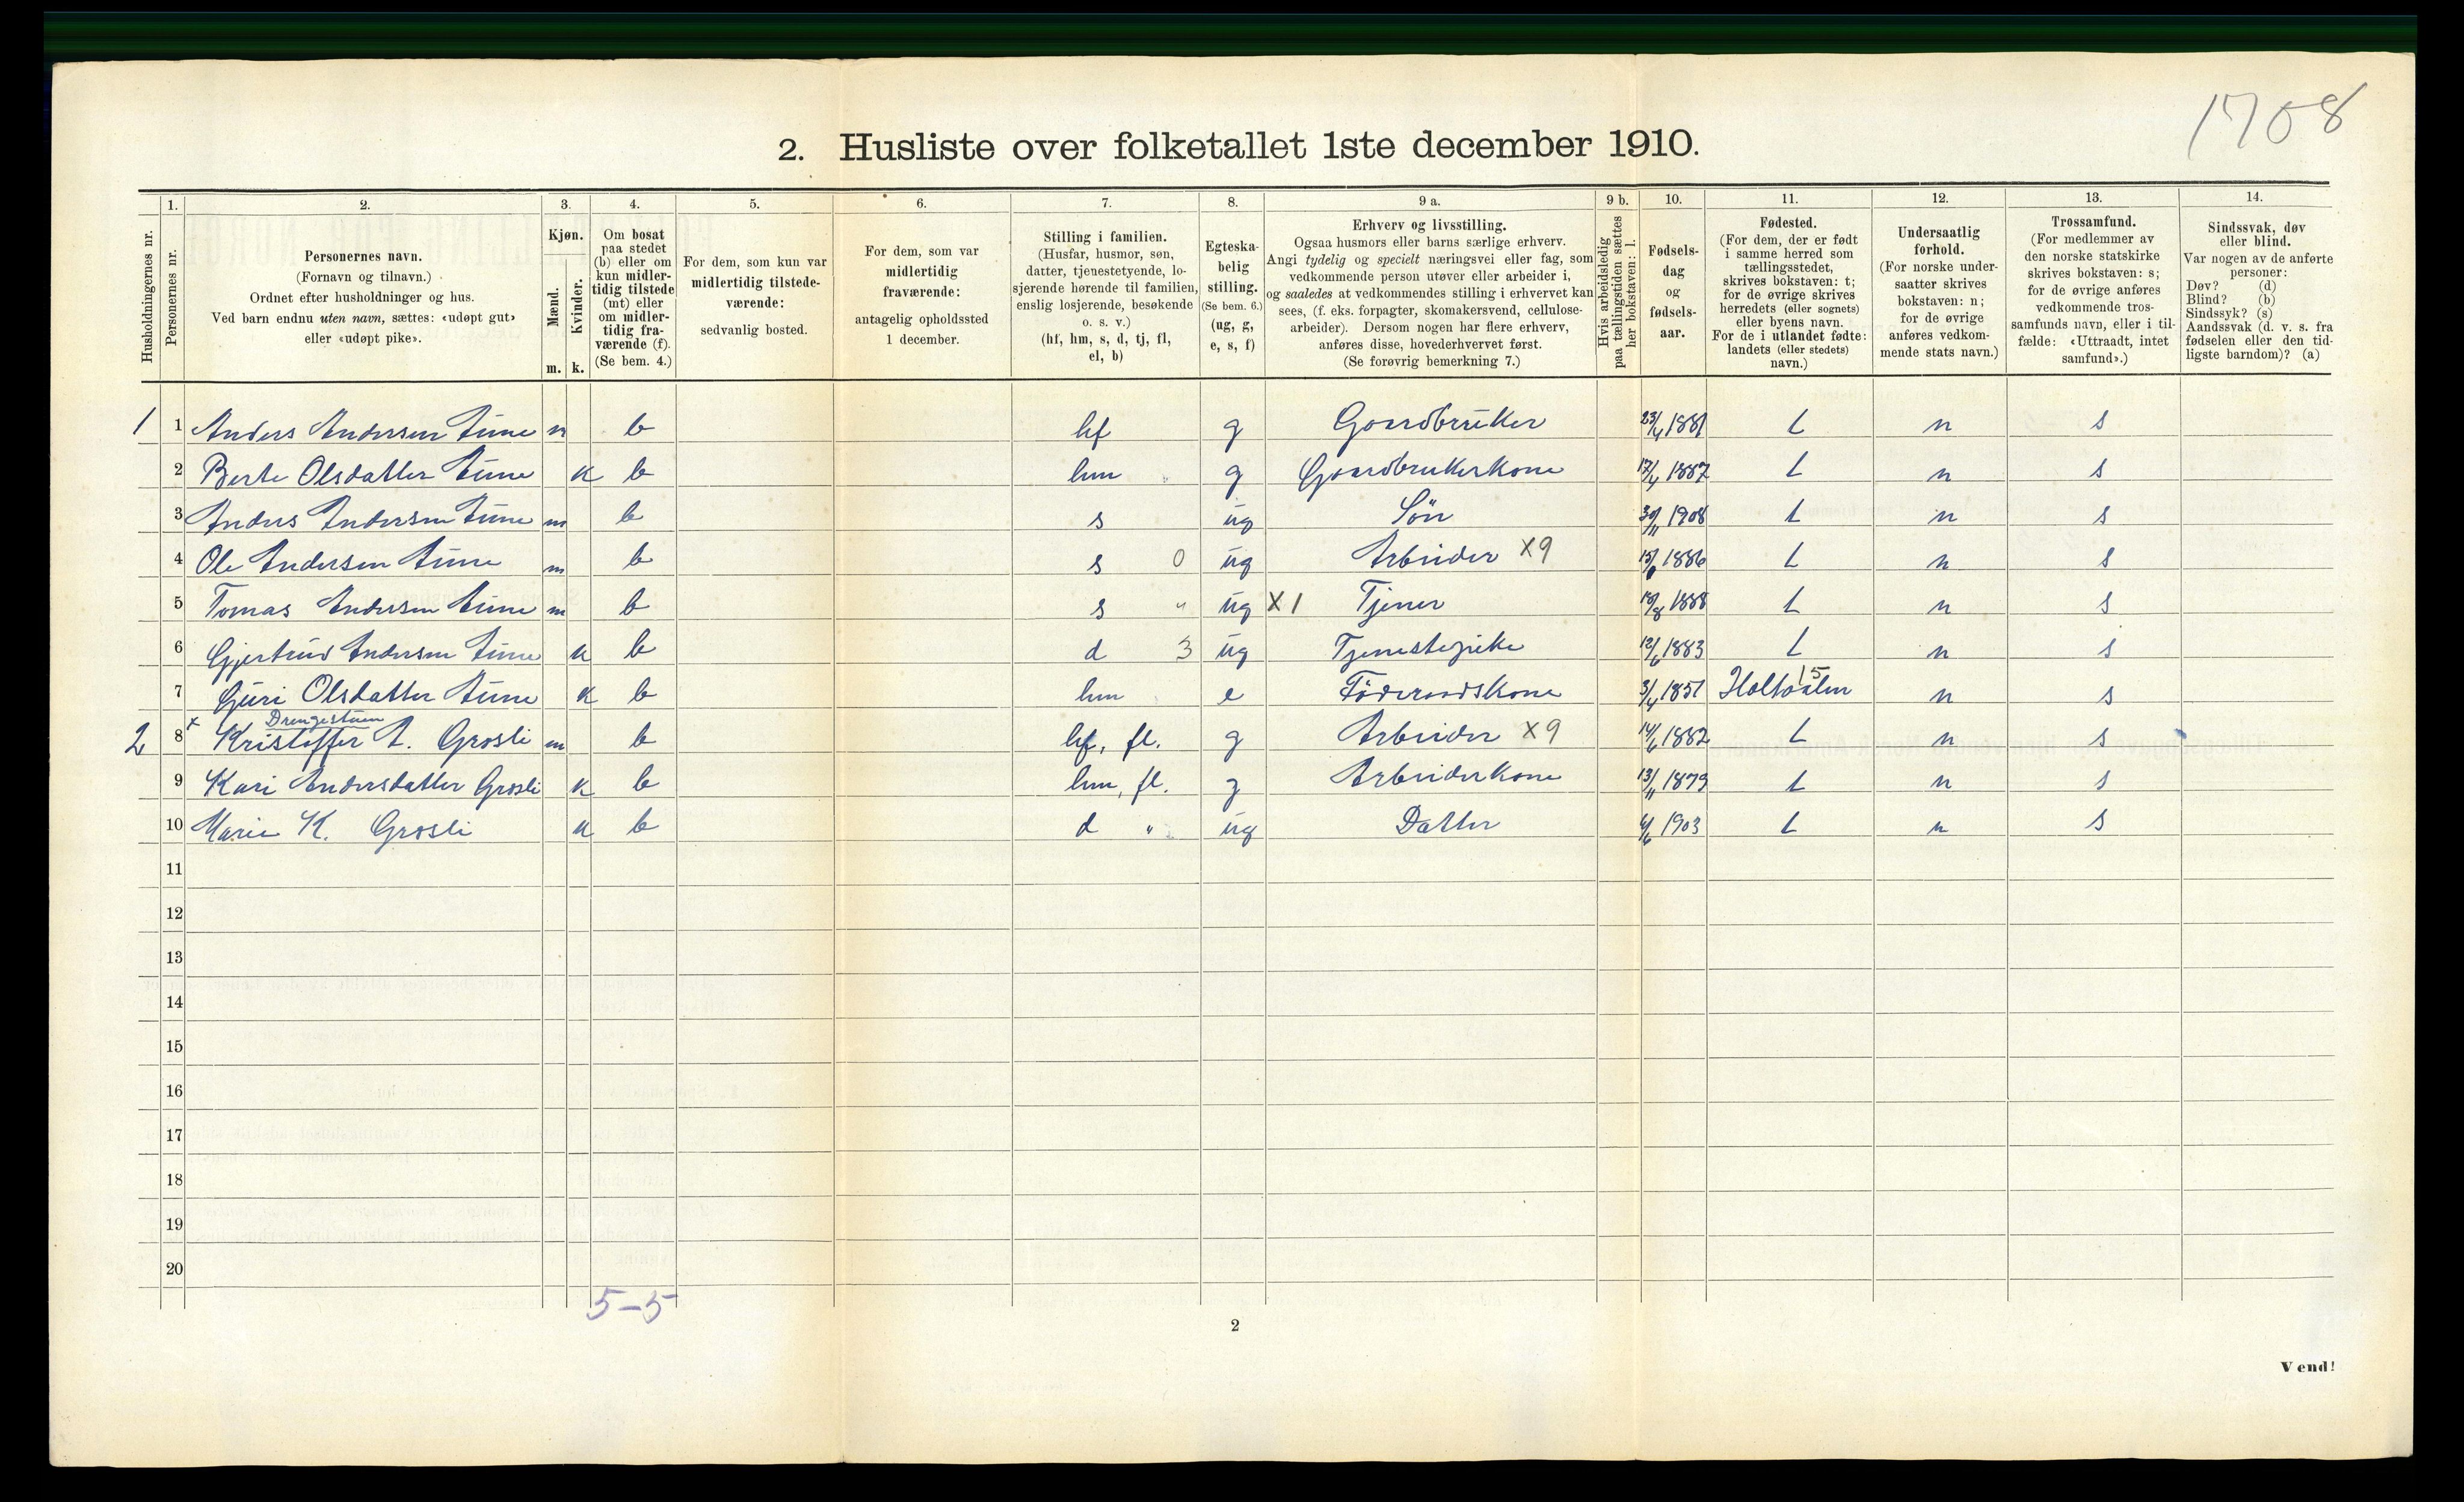 1708
2. Husliste over folketallet 1ste december 1910.
Husholdningernes nr.
1. Personernes nr.
2. Personernes navn.
(Fornavn og tilnavn.)
Ordnet efter husholdninger og hus.
Ved barn endnu uten navn, sættes: «udøpt gut»
eller «udøpt pike».
3. Kjøn.
Mænd. Kvinder.
m. k.
4. Om bosat
paa stedet
(b) eller om
kun midler-
tidig tilstede
(mt) eller
om midler-
tidig fra-
værende (f).
(Se bem. 4.)
5. For dem, som kun var
midlertidig tilstede-
værende:
sedvanlig bosted.
6. For dem, som var
midlertidig
fraværende:
antagelig opholdssted
1 december.
7. Stilling i familien.
(Husfar, husmor, søn,
datter, tjenestetyende, lo-
sjerende hørende til familien,
enslig losjerende, besøkende
o. s. v.)
(hf, hm, s, d, tj, fl,
el, b)
8. Egteska-
belig
stilling.
(Se bem. 6.)
(ug, g,
e, s, f)
9 a. Erhverv og livsstilling.
Ogsaa husmors eller barns særlige erhverv.
Angi tydelig og specielt næringsvei eller fag, som
vedkommende person utøver eller arbeider i,
og saaledes at vedkommendes stilling i erhvervet kan
sees, (f. eks. forpagter, skomakersvend, cellulose-
arbeider). Dersom nogen har flere erhverv,
anføres disse, hovederhvervet først.
(Se forøvrig bemerkning 7.)
9 b. Hvis arbeidsledig
paa tællingstiden sættes
her bokstaven: l.
10. Fødsels-
dag
og
fødsels-
aar.
11. Fødested.
(For dem, der er født
i samme herred som
tællingsstedet,
skrives bokstaven: t;
for de øvrige skrives
herredets (eller sognets)
eller byens navn.
For de i utlandet fødte:
landets (eller stedets)
navn.)
12. Undersaatlig
forhold.
(For norske under-
saatter skrives
bokstaven: n;
for de øvrige
anføres vedkom-
mende stats navn.)
13. Trossamfund.
(For medlemmer av
den norske statskirke
skrives bokstaven: s;
for de øvrige anføres
vedkommende tros-
samfunds navn, eller i til-
fælde: «Uttraadt, intet
samfund».)
14. Sindssvak, døv
eller blind.
Var nogen av de anførte
personer:
Døv? (d)
Blind? (b)
Sindssyk? (s)
Aandssvak (d. v. s. fra
fødselen eller den tid-
ligste barndom)? (a)
1 1 Anders Andersen Aune m b hf g Gaardbruker 23/4 1881 t n s
2 Berte Olsdatter Aune k b hm g Gaardbrukerkone 17/4 1887 t n s
3 Anders Andersen Aune m b s ug Søn 30/11 1908 t n s
4 Ole Andersen Aune m b s 0 ug Arbeider X9 1886 t n s
5 Tomas Andersen Aune m b s " ug X1 Tjener 1888 t n s
6 Gjertrud Andersen Aune k b d 3 ug Tjenestepike 12/6 1883 t n s
7 Guri Olsdatter Aune k b hm e Føderaadskone 3/4 1851 Holtaalen 15 n s
Drengestuen
2 8 x Kristoffer A. Grosli m b hf, fl. g Arbeider X9 14/6 1882 t n s
9 Kari Andersdatter Grosli k b hm, fl. g Arbeiderkone 13/11 1879 t n s
10 Marie K. Grosli k b d " ug Datter 1903 t n s
11
12
13
14
15
16
17
18
19
20
5–5
2
Vend!